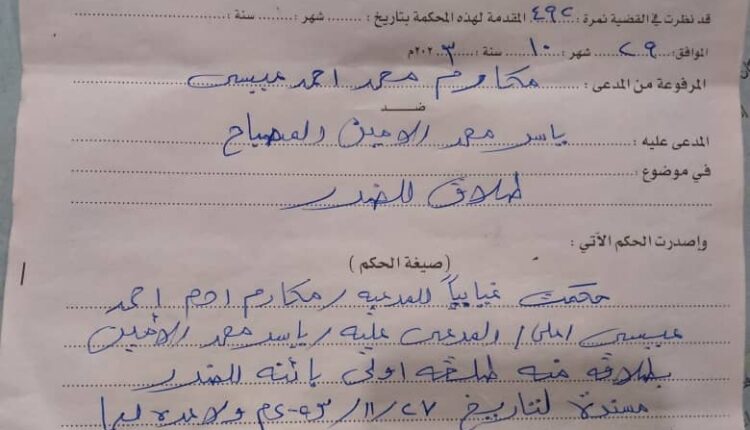 قد نظرت في القضية نمرة : ٤٩٢ المقدمة لهذه المحكمة بتاريخ : شهر : سنة :
الموافق : ٢٩ شهر : ١٠ سنة : ٢٠٢٣م
المرفوعة من المدعى : مكارم محمد احمد عيسى
ضد
المدعى عليه : ياسر محمد الامين المصباح
في موضوع :
طلاق للضرر
واصدرت الحكم الآتي :
(صيغة الحكم)
حكمت غيابياً للمدعيه / مكارم ادم احمد
عيسى على / المدعى عليه / ياسر محمد الأمين
بطلاقه منه طلقه اولى بائنه للضرر
مسندة لتاريخ ٢٧/١١/ ولا عده لها